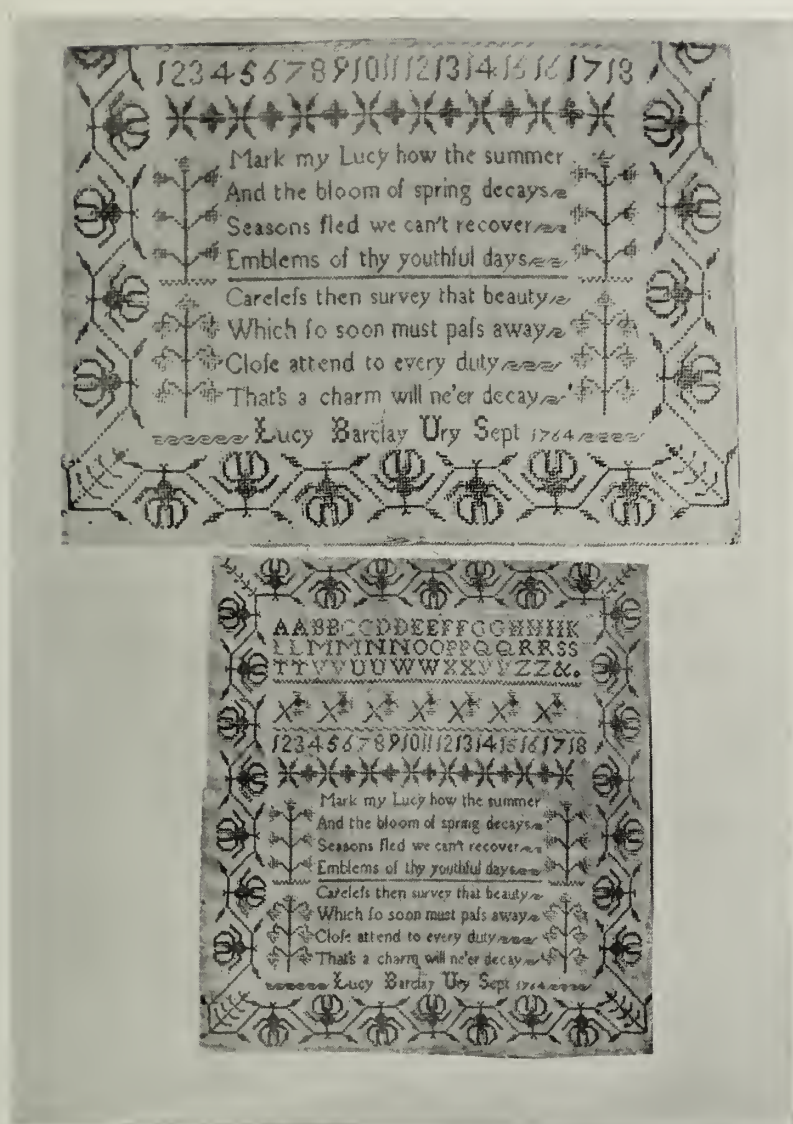 123456789101112131415161718
Mark my Lucy how the summer
And the bloom of spring decays
Seasons fled we can't recover
Emblems of thy youthful days
Carelefs then survey that beauty
Which ſo soon must paſs away
Cloſe attend to every duty
That's a charm will ne'er decay
Lucy Barclay Ury Sept 1764
AABBCCDDEEFFGGHHIIK
LLMMNNOOPPQQRRSS
TTVVUUWWXXYYZZ&.
123456789101112131415161718
Mark my Lucy how the summer
And the bloom of spring decays
Seasons fled we can't recover
Emblems of thy youthful days
Carelefs then survey that beauty
Which ſo soon must paſs away
Cloſe attend to every duty
That's a charm will ne'er decay
Lucy Barclay Ury Sept 1764